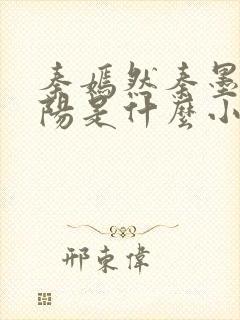 秦嫣然秦墨
陽是什麼小
邢東偉